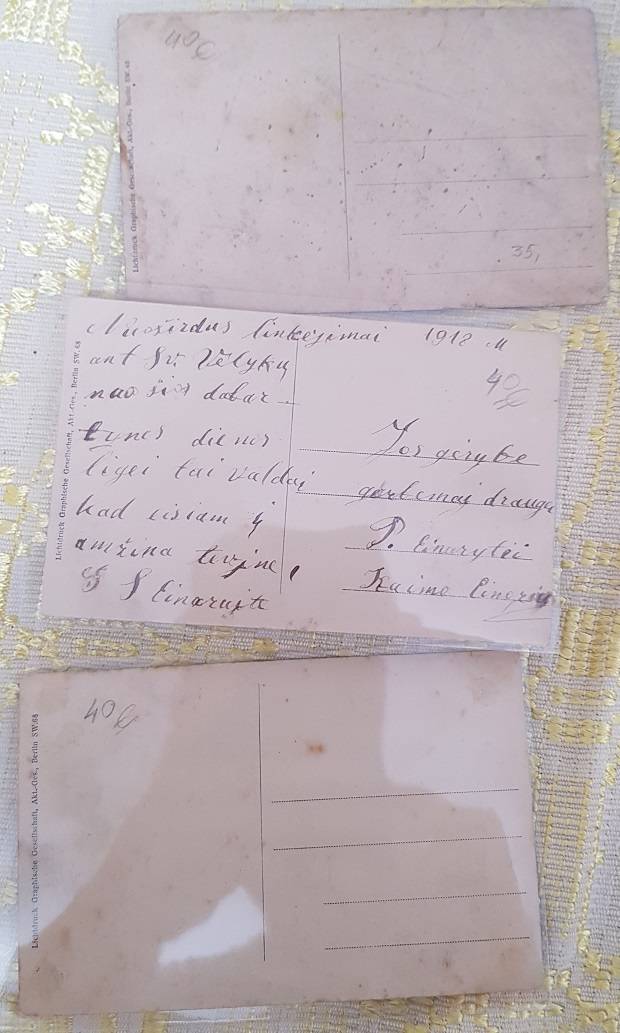 40
Lichtdruck Graphische Gesellschaft, Akt.-Ges., Berlin SW.68
35,
Nuoširdus linkėjimai 1912 M
ant Šv. Vėlykų
nuo šios dabar-
tynės dienos
ligei tai valdai
kad eisiam į
amžina tevjne,
S Linarujte
Lichtdruck Graphische Gesellschaft, Akt.-Ges., Berlin SW.68
40
Jos gėrybe
gerbemaj drauga
P. Linarytėi
Kaimo
40
Lichtdruck Graphische Gesellschaft, Akt.-Ges., Berlin SW.68